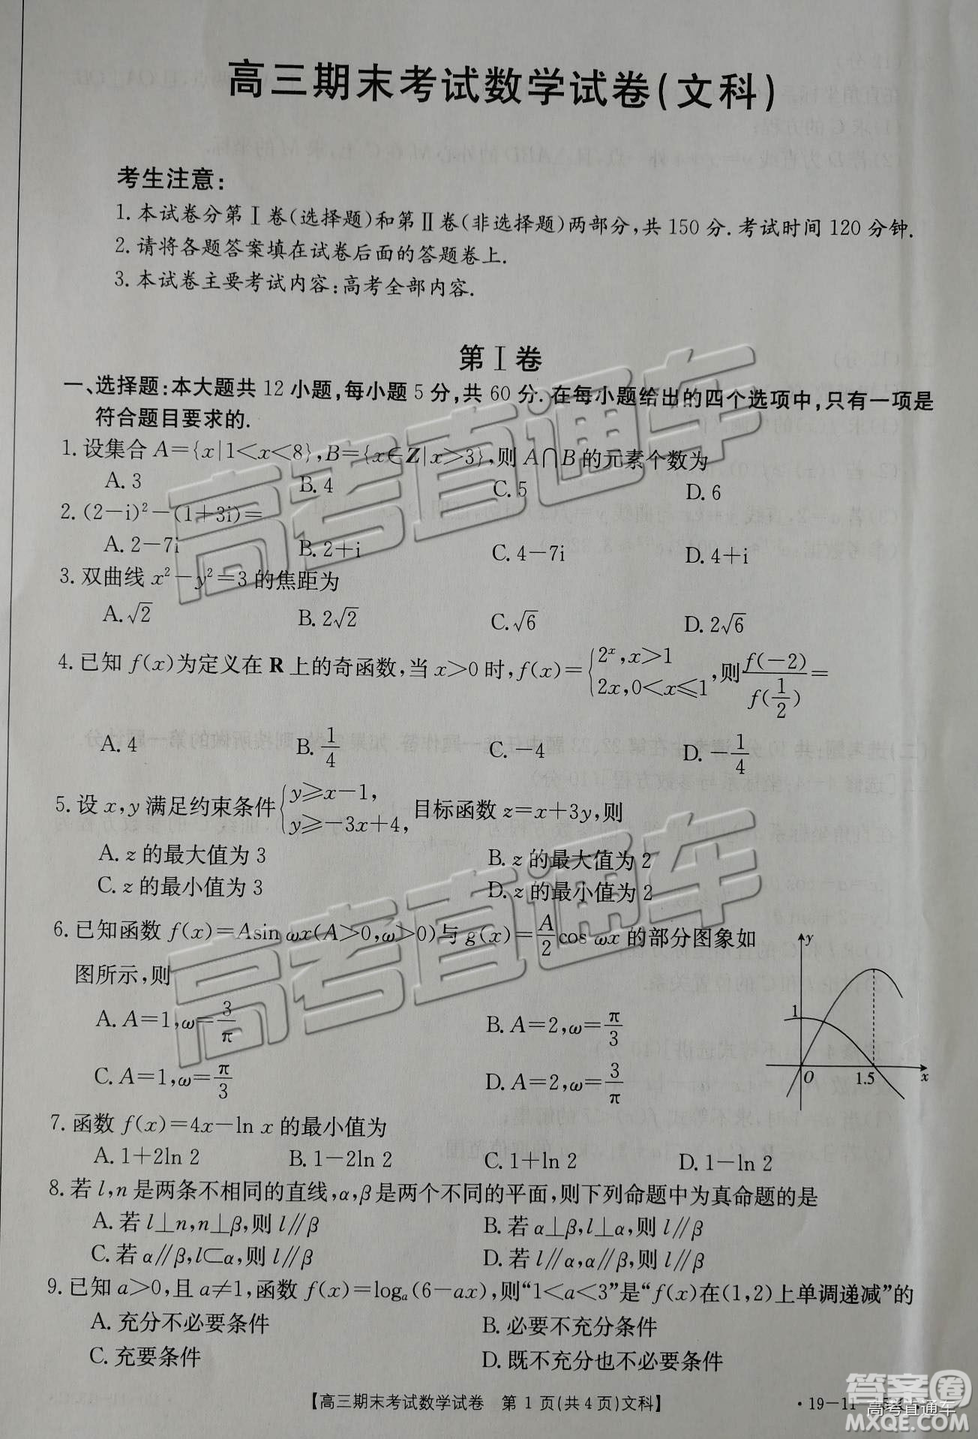 高三期末考试数学试卷(文科)
考生注意:
1.本试卷分第Ⅰ卷(选择题)和第Ⅱ卷(非选择题)两部分,共150分.考试时间120分钟.
2.请将各题答案填在试卷后面的答题卷上.
3.本试卷主要考试内容:高考全部内容.
第Ⅰ卷
一、选择题:本大题共12小题,每小题5分,共60分.在每小题给出的四个选项中,只有一项是
符合题目要求的.
1.设集合A={x|1<x<8},B={x∈Z|x>3},则A∩B的元素个数为
A.3 B.4 C.5 D.6
2.(2-i)²-(1+3i)=
A.2-7i B.2+i C.4-7i D.4+i
3.双曲线x²-y²=3的焦距为
A.√2 B.2√2 C.√6 D.2√6
4.已知f(x)为定义在R上的奇函数,当x>0时,f(x)={2ˣ,x>1 2x,0<x≤1,则f(-2)/f(1/2)=
A.4 B.1/4 C.-4 D.-1/4
5.设x,y满足约束条件{y≥x-1, y≥-3x+4,目标函数z=x+3y,则
A.z的最大值为3 B.z的最大值为2
C.z的最小值为3 D.z的最小值为2
6.已知函数f(x)=Asin ωx(A>0,ω>0)与g(x)=A/2 cos ωx的部分图象如
图所示,则
A.A=1,ω=3/π B.A=2,ω=π/3
C.A=1,ω=π/3 D.A=2,ω=3/π
y
1
O 1.5 x
7.函数f(x)=4x-ln x的最小值为
A.1+2ln 2 B.1-2ln 2 C.1+ln 2 D.1-ln 2
8.若l,n是两条不相同的直线,α,β是两个不同的平面,则下列命题中为真命题的是
A.若l⊥n,n⊥β,则l∥β B.若α⊥β,l⊥α,则l∥β
C.若α∥β,l⊂α,则l∥β D.若l∥α,α∥β,则l∥β
9.已知a>0,且a≠1,函数f(x)=logₐ(6-ax),则“1<a<3”是“f(x)在(1,2)上单调递减”的
A.充分不必要条件 B.必要不充分条件
C.充要条件 D.既不充分也不必要条件
【高三期末考试数学试卷 第1页(共4页)文科】
·19-11
高考直通车
高考直通车
答案圈
高考直通车
MXQE.COM